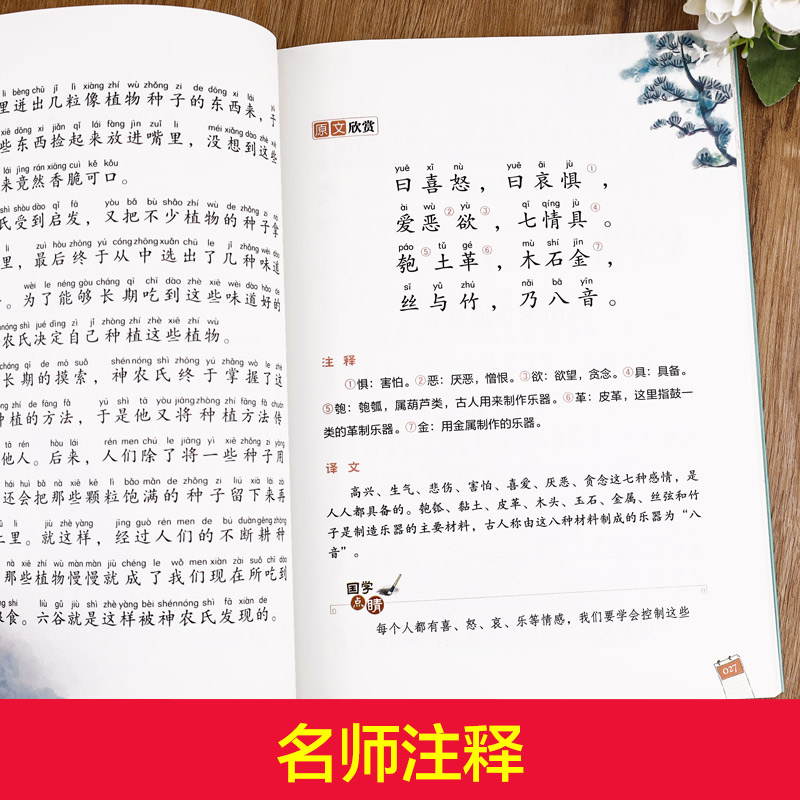 lǐ bèng chū jǐ lì xiàng zhí wù zhǒng zi de dōng xi lái yú
里迸出几粒像植物种子的东西来，于
xiē dōng xi jiǎn qǐ lái fàng jìn zuǐ lǐ méi xiǎng dào zhè xiē
些东西捡起来放进嘴里，没想到这些
lái jìng rán xiāng cuì kě kǒu
来竟然香脆可口。
shì shòu dào qǐ fā yòu bǎ bù shǎo zhí wù de zhǒng zi ná
氏受到启发，又把不少植物的种子拿
lǐ zuì hòu zhōng yú cóng zhōng xuǎn chū le jǐ zhǒng wèi dào
里，最后终于从中选出了几种味道
wèi le néng gòu cháng qī chī dào zhè xiē wèi dào hǎo de
。为了能够长期吃到这些味道好的
nóng shì jué dìng zì jǐ zhòng zhí zhè xiē zhí wù
农氏决定自己种植这些植物。
cháng qī de mō suǒ shén nóng shì zhōng yú zhǎng wò le zhè
长期的摸索，神农氏终于掌握了这
zhòng zhí de fāng fǎ yú shì tā yòu jiāng zhòng zhí fāng fǎ chuán
种植的方法，于是他又将种植方法传
tā rén hòu lái rén men chú le jiāng yì xiē zhǒng zi yòng
他人。后来，人们除了将一些种子用
hái huì bǎ nà xiē kē lì bǎo mǎn de zhǒng zi liú xià lái zài
还会把那些颗粒饱满的种子留下来再
lǐ jiù zhè yàng jīng guò rén men de bú duàn gēng zhòng
里。就这样，经过人们的不断耕种
nà xiē zhí wù màn màn jiù chéng le wǒ men xiàn zài suǒ chī dào
那些植物慢慢就成了我们现在所吃到
shí liù gǔ jiù shì zhè yàng bèi shén nóng shì fā xiàn de
食。六谷就是这样被神农氏发现的。
原文欣赏
yuē xǐ nù yuē āi jù
曰喜怒，曰哀惧①，
ài wù yù qī qíng jù
爱恶②欲③，七情具④。
páo tǔ gé mù shí jīn
匏⑤土革⑥，木石金⑦，
sī yǔ zhú nǎi bā yīn
丝与竹，乃八音。
注释
①惧：害怕。②恶：厌恶，憎恨。③欲：欲望，贪念。④具：具备。
⑤匏：匏瓠，属葫芦类，古人用来制作乐器。⑥革：皮革，这里指鼓一
类的革制乐器。⑦金：用金属制作的乐器。
译文
高兴、生气、悲伤、害怕、喜爱、厌恶、贪念这七种感情，是
人人都具备的。匏瓠、黏土、皮革、木头、玉石、金属、丝弦和竹
子是制造乐器的主要材料，古人称由这八种材料制成的乐器为“八
音”。
国学点睛
每个人都有喜、怒、哀、乐等情感，我们要学会控制这些
027
名师注释